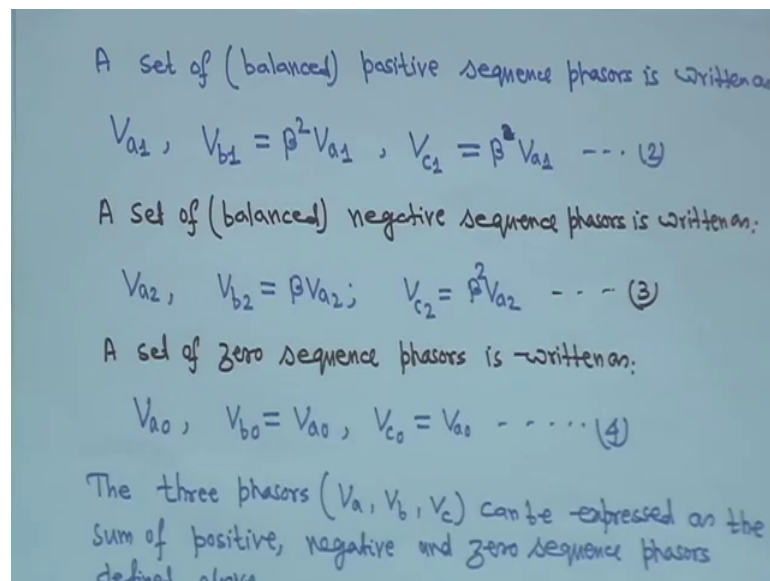 A set of (balanced) positive sequence phasors is written as
Va1, Vb1 = β²Va1, Vc1 = βVa1 --- (2)
A set of (balanced) negative sequence phasors is written as:
Va2, Vb2 = βVa2; Vc2 = β²Va2 --- - (3)
A set of zero sequence phasors is written as:
Va0, Vb0 = Va0, Vc0 = Va0 ------ (4)
The three phasors (Va, Vb, Vc) can be expressed as the
sum of positive, negative and zero sequence phasors
defined above